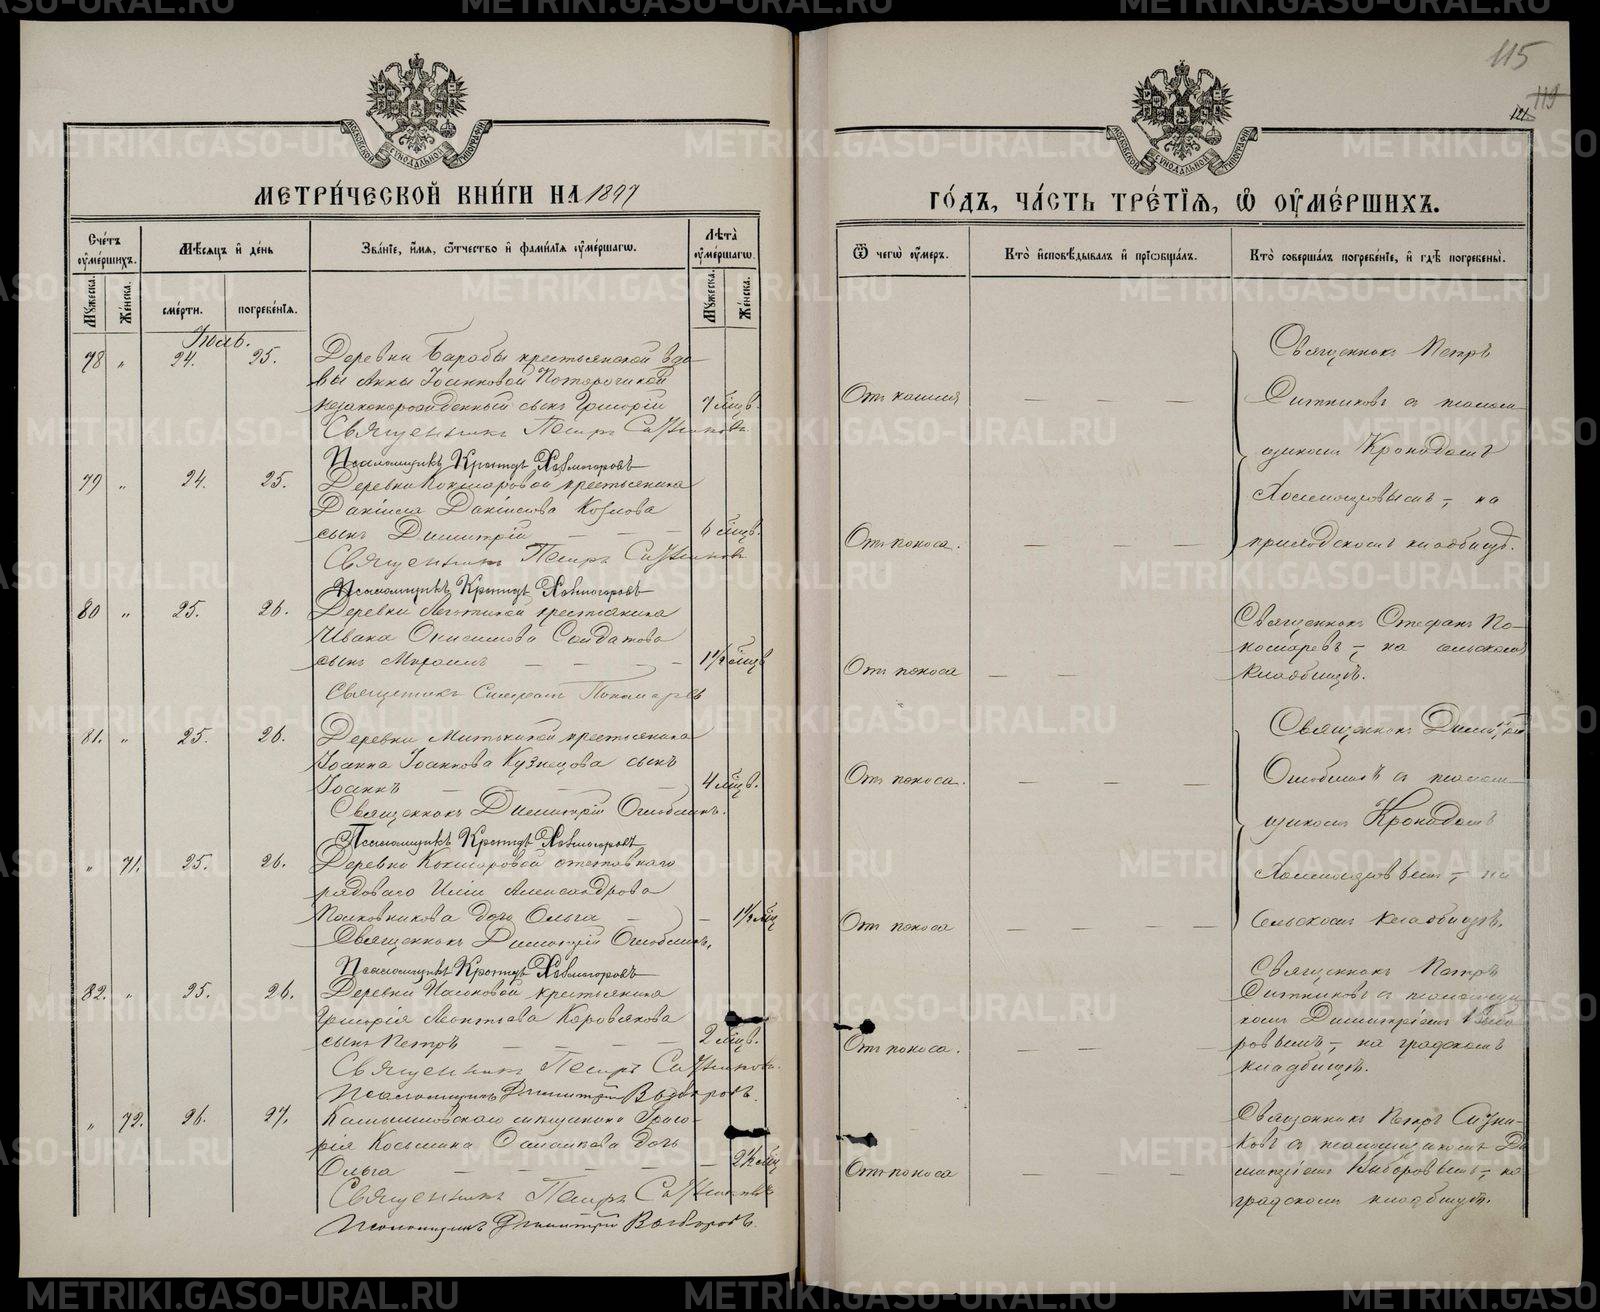 115
119
МЕТРИ́ЧЕСКОЙ КНИ́ГИ НА 1897
ГО́ДЪ, ЧА́СТЬ ТРЕ́ТІЯ, Ѡ ОУМЕ́РШИХЪ.
Сче́тъ оуме́ршихъ.
Мꙋжеска.
Же́нска.
Мѣсяцъ и́ де́нь
сме́рти.
погребе́нїя.
Зва́нїе, и́мя, ѻ́тчество и́ фами́лїя оуме́ршагѡ.
Лѣта̀ оуме́ршагѡ.
Мꙋжеска.
Же́нска.
Ѿ чегѡ̀ оу́меръ.
Кто̀ и́сповѣ́дывалъ и́ прїѡбща́лъ.
Кто̀ соверша́лъ погребе́нїе, и́ гдѣ̀ погребены̀.
78 " 24. 25. Деревни Барабы крестьянской вдо-
вы Анны Іоанновой
незаконорожденный сынъ Григорій 7 мѣц.
Священникъ Петръ Ситниковъ.
Псаломщикъ Кронидъ Холмогоровъ
От кашля — — — —
Священникъ Петръ
Ситниковъ с псалом-
щикомъ Кронидомъ
Холмогоровымъ, на
приходскомъ кладбищѣ.
79 " 24. 25. Деревни Кокшаровой крестьянина
Даніила Даніилова Козлова
сынъ Димитрій — — — 6 мѣц.
Священникъ Петръ Ситниковъ
Псаломщикъ Кронидъ Холмогоровъ
От поноса. — — — —
80 " 25. 26. Деревни крестьянина
Ивана Онисимова Солдатова
сынъ — — — — 1½ мѣц
Священникъ Стефанъ Пономаревъ
От поноса — —
Священникъ Стефанъ По-
номаревъ, на сельскомъ
кладбищѣ.
81. " 25. 26. Деревни Митькиной крестьянина
Іоанна Іоаннова Кузнецова сынъ
Іоаннъ — — — — 4 мѣц.
Священникъ Димитрій Оглоблинъ.
Псаломщикъ Кронидъ Холмогоровъ
От поноса. — — —
Священникъ Димитрій
Оглоблинъ с псалом-
щикомъ Кронидомъ
Холмогоровымъ, на
сельскомъ кладбищѣ.
" 71. 25. 26. Деревни Кокшаровой отставнаго
рядоваго Иліи Александрова
Полковникова дочь Ольга — — 1½ мѣц
Священникъ Димитрій Оглоблинъ,
Псаломщикъ Кронидъ Холмогоровъ
От поноса — — — — —
82. " 25. 26. Деревни крестьянина
Григорія Леонтьева Коровякова
сынъ Петръ — — — — 2 мѣц.
Священникъ Петръ Ситниковъ.
Псаломщикъ Димитрій Выборовъ.
От поноса. — — —
Священникъ Петръ
Ситниковъ с псаломщи-
комъ Димитріемъ Выбо-
ровымъ, на градскомъ
кладбищѣ.
" 72. 26. 27. Камышловскаго мѣщанина Григо-
рія Косьмина дочь
Ольга — — — — — 2½ мѣц
Священникъ Петръ Ситниковъ
Псаломщикъ Димитрій Выборовъ.
От поноса — — —
Священникъ Петръ Ситни-
ковъ с псаломщикомъ Ди-
митріемъ Выборовымъ, на
градскомъ кладбищѣ.
METRIKI.GASO-URAL.RU